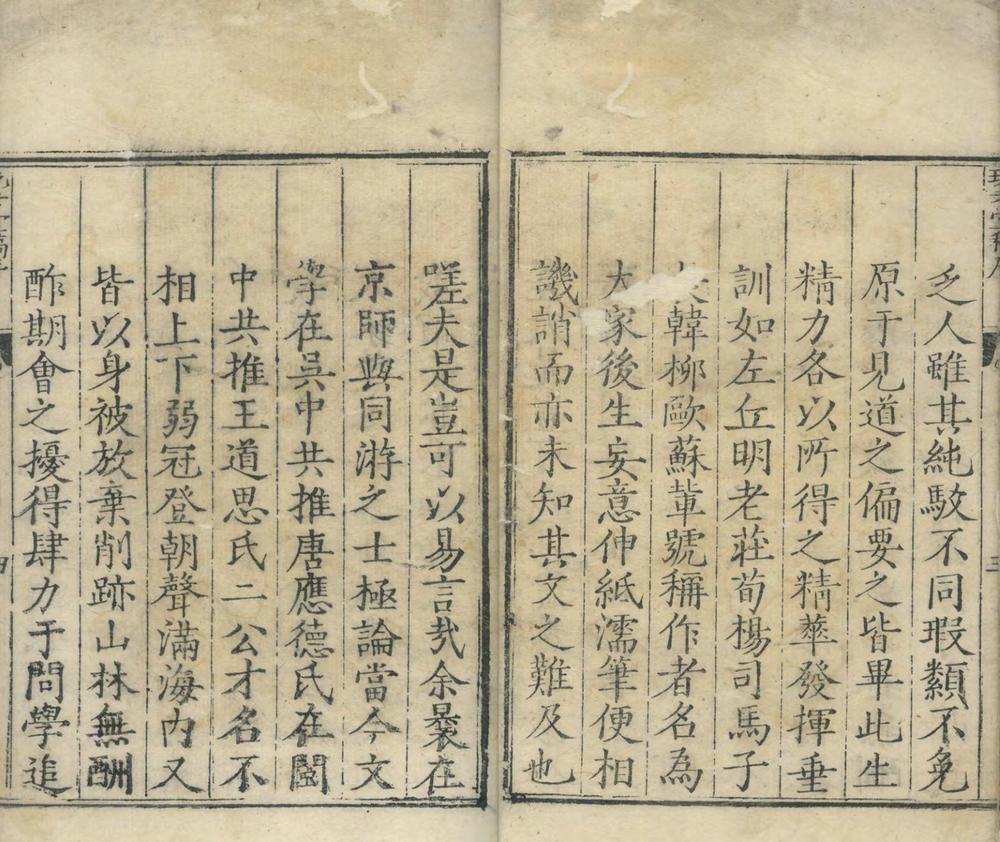 乏人雖其純駁不同瑕纇不免
原于見道之偏要之皆畢此生
精力各以所得之精華發揮垂
訓如左丘明老莊荀楊司馬子
韓柳歐蘇輩號稱作者名為
大家後生妄意伸紙濡筆便相
譏誚而亦未知其文之難及也
嗟夫是豈可以易言哉余曩在
京師與同游之士極論當今文
學在吳中共推唐應德氏在閩
中共推王道思氏二公才名不
相上下弱冠登朝聲滿海內又
皆以身被放棄削跡山林無酬
酢期會之擾得肆力于問學追